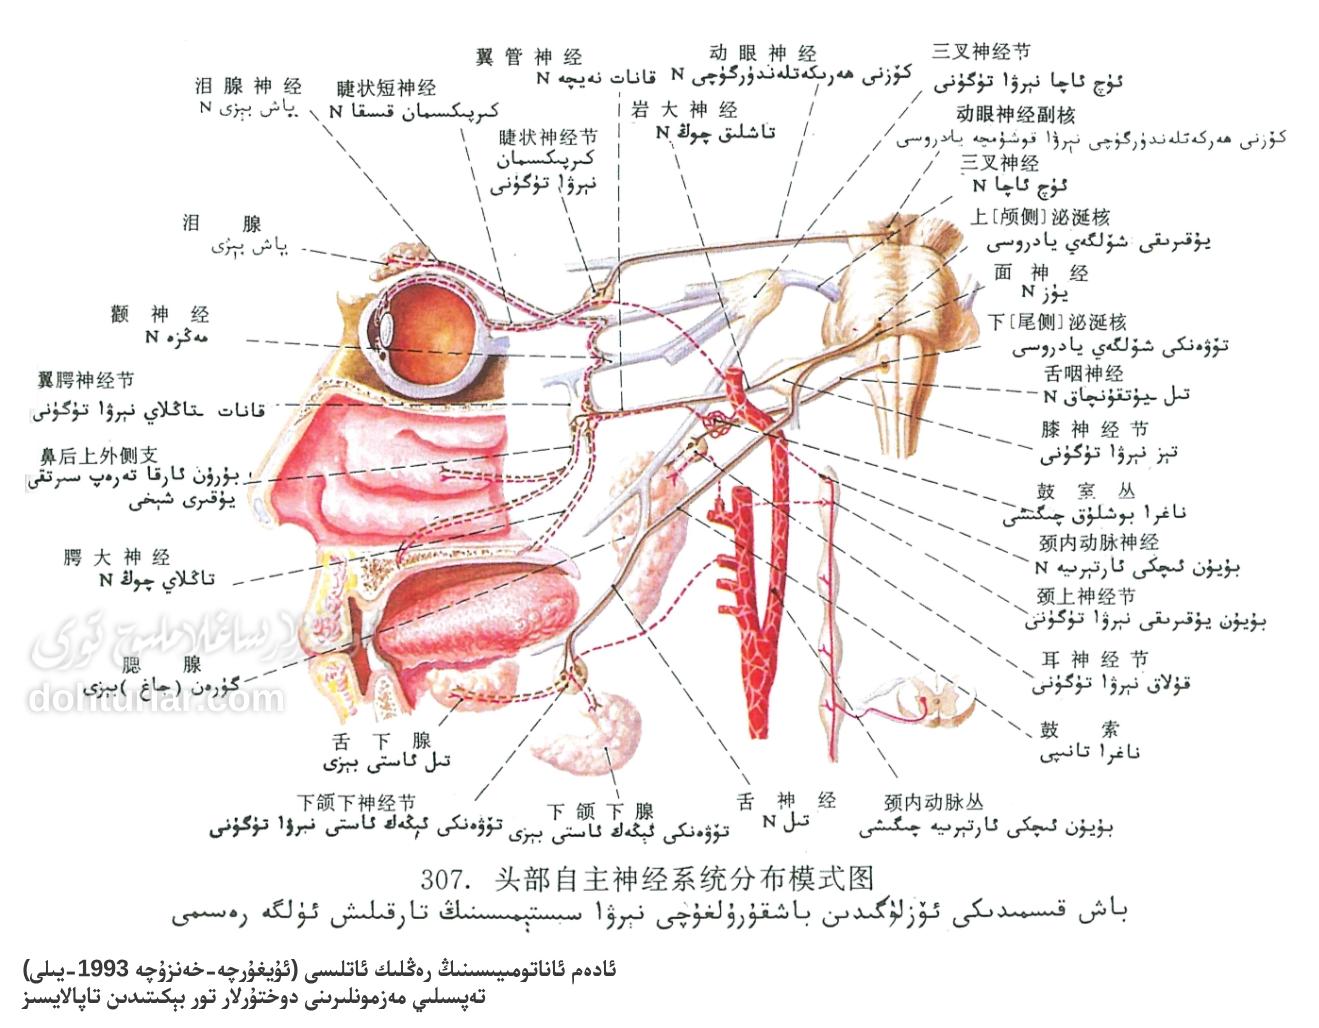 翼管神经
قانات نەيچە N
动眼神经
كۆزنى ھەرىكەتلەندۈرگۈچى N
三叉神经节
ئۈچ ئاچا نېرۋا تۈگۈنى
泪腺神经
ياش بېزى N
睫状短神经
كىرپىكسىمان قىسقا N
岩大神经
تاشلىق چوڭ N
动眼神经副核
كۆزنى ھەرىكەتلەندۈرگۈچى نېرۋا قوشۇمچە يادروسى
睫状神经节
كىرپىكسىمان
نېرۋا تۈگۈنى
三叉神经
ئۈچ ئاچا N
上[颅侧]泌涎核
يۇقىرىقى شۆلگەي يادروسى
泪腺
ياش بېزى
面神经
يۈز N
颧神经
مەڭزە N
下[尾侧]泌涎核
تۆۋەنكى شۆلگەي يادروسى
翼腭神经节
قانات ـتاڭلاي نېرۋا تۈگۈنى
舌咽神经
تىل ـيۇتقۇنچاق N
膝神经节
تىز نېرۋا تۈگۈنى
鼻后上外侧支
بۇرۇن ئارقا تەرەپ سىرتقى
يۇقىرى شېخى
鼓室丛
ناغرا بوشلۇق چىگىشى
颈内动脉神经
بويۇن ئىچكى ئارتېرىيە N
腭大神经
تاڭلاي چوڭ N
颈上神经节
بويۇن يۇقىرىقى نېرۋا تۈگۈنى
腮腺
گۈرەن (جاغ) بېزى
耳神经节
قۇلاق نېرۋا تۈگۈنى
dohturlar.com
鼓索
ناغرا تانىپى
舌下腺
تىل ئاستى بېزى
下颌下神经节
تۆۋەنكى ئېڭەك ئاستى نېرۋا تۈگۈنى
下颌下腺
تۆۋەنكى ئېڭەك ئاستى بېزى
舌神经
تىل N
颈内动脉丛
بويۇن ئىچكى ئارتېرىيە چىگىشى
307. 头部自主神经系统分布模式图
باش قىسمىدىكى ئۆزلۈگىدىن باشقۇرۇلغۇچى نېرۋا سىستېمىسىنىڭ تارقىلىش ئۈلگە رەسىمى
ئادەم ئاناتومىيىسىنىڭ رەڭلىك ئاتلىسى (ئۇيغۇرچە-خەنزۇچە 1993-يىلى)
تەپسىلىي مەزمونلىرىنى دوختۇرلار تور بېكىتىدىن تاپالايسىز